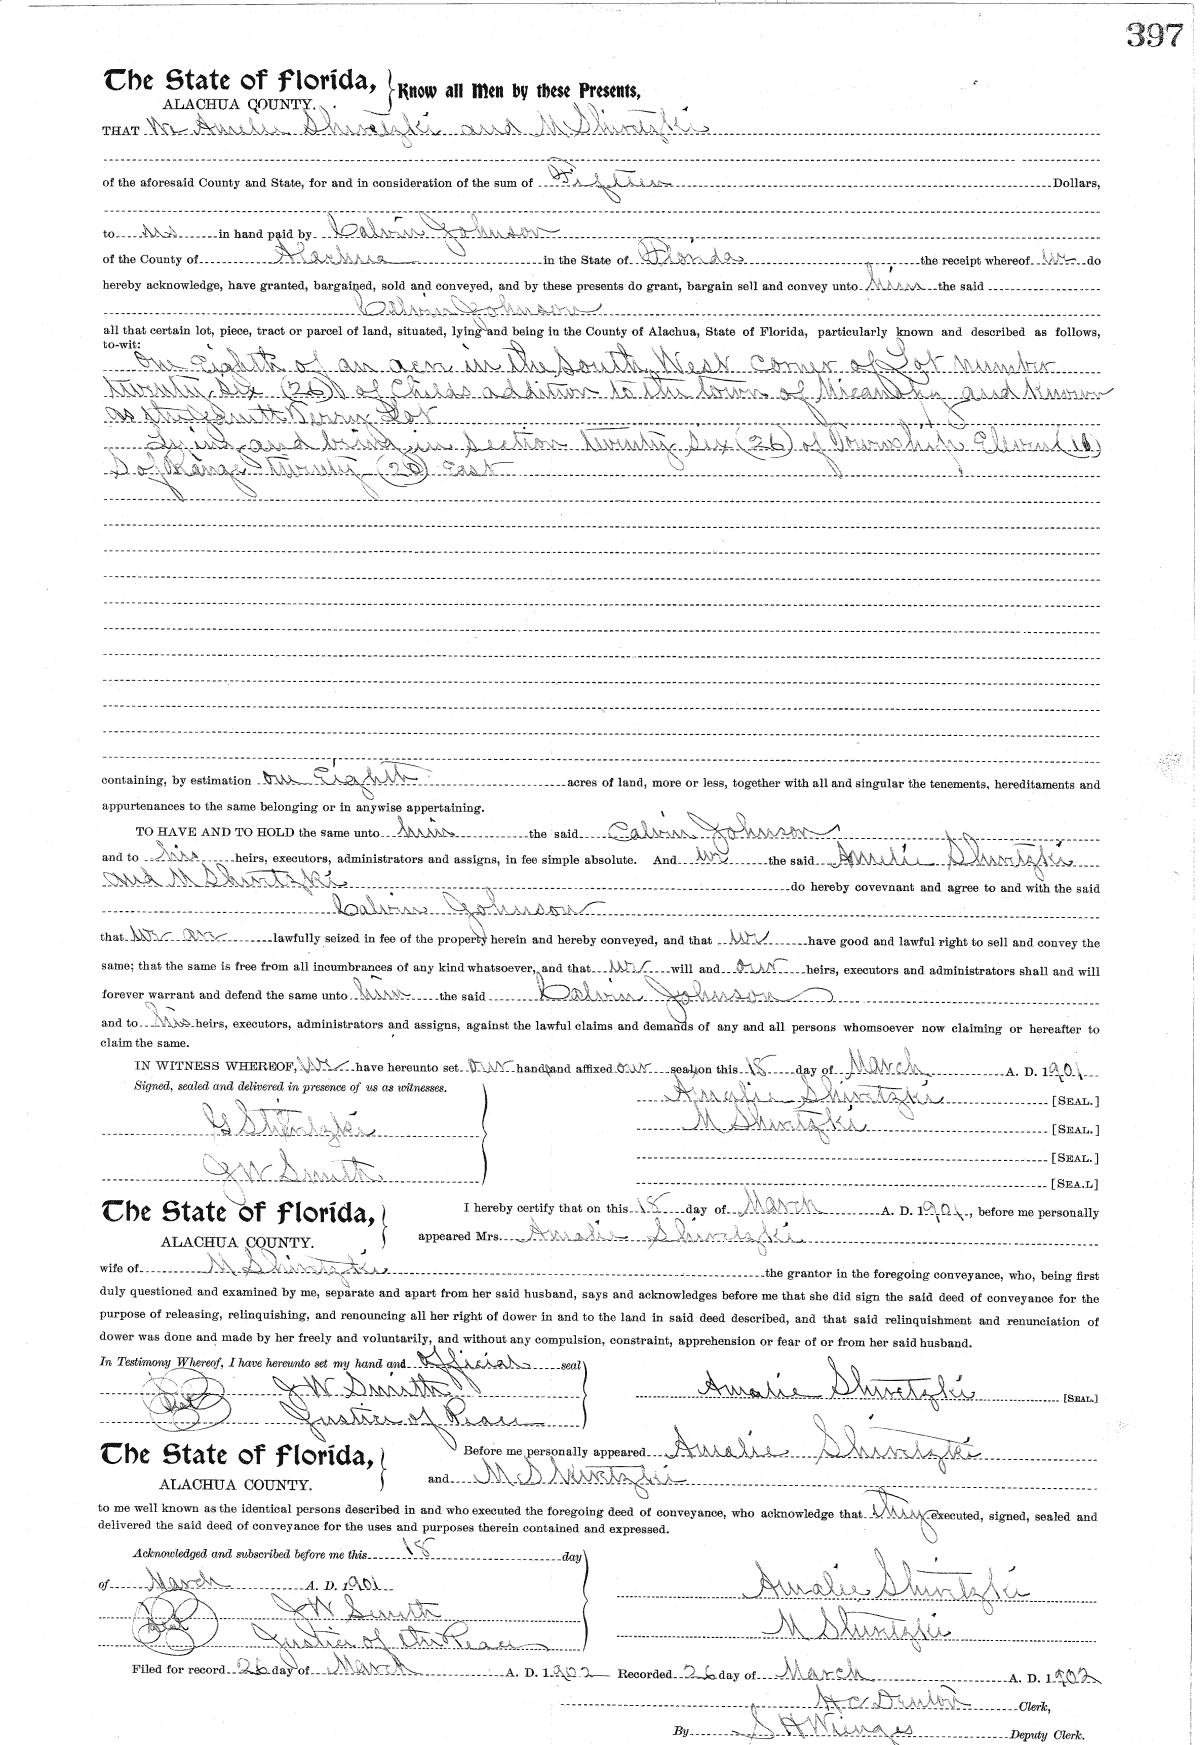 397
The State of Florida, Know all Men by these Presents,
ALACHUA COUNTY.
THAT We Amelie Shivetzki and M Shivetzki
of the aforesaid County and State, for and in consideration of the sum of Fifteen Dollars,
to us in hand paid by Calvin Johnson
of the County of Alachua in the State of Florida the receipt whereof we do
hereby acknowledge, have granted, bargained, sold and conveyed, and by these presents do grant, bargain sell and convey unto him the said
Calvin Johnson
all that certain lot, piece, tract or parcel of land, situated, lying and being in the County of Alachua, State of Florida, particularly known and described as follows,
to-wit:
One Eighth of an acre in the South West corner of Lot number
twenty Six (26) of Childs addition to the town of Micanopy and Known
as the Smith Berry Lot
Lying and being in Section twenty Six (26) of Township Eleven (11)
S of Range twenty (20) East
containing, by estimation one Eighth acres of land, more or less, together with all and singular the tenements, hereditaments and
appurtenances to the same belonging or in anywise appertaining.
TO HAVE AND TO HOLD the same unto him the said Calvin Johnson
and to his heirs, executors, administrators and assigns, in fee simple absolute. And we the said Amelie Shivetzki
and M Shivetzki do hereby covevnant and agree to and with the said
Calvin Johnson
that we are lawfully seized in fee of the property herein and hereby conveyed, and that we have good and lawful right to sell and convey the
same; that the same is free from all incumbrances of any kind whatsoever, and that we will and our heirs, executors and administrators shall and will
forever warrant and defend the same unto him the said Calvin Johnson
and to his heirs, executors, administrators and assigns, against the lawful claims and demands of any and all persons whomsoever now claiming or hereafter to
claim the same.
IN WITNESS WHEREOF, we have hereunto set our hand and affixed our seal on this 18 day of March A. D. 1901
Signed, sealed and delivered in presence of us as witnesses. Amalie Shivetzki [SEAL.]
G Shivetzki M Shivetzki [SEAL.]
[SEAL.]
J W Smith [SEA.L]
The State of Florida, I hereby certify that on this 18 day of March A. D. 1901, before me personally
ALACHUA COUNTY. appeared Mrs. Amalie Shivetzki
wife of M Shivetzki the grantor in the foregoing conveyance, who, being first
duly questioned and examined by me, separate and apart from her said husband, says and acknowledges before me that she did sign the said deed of conveyance for the
purpose of releasing, relinquishing, and renouncing all her right of dower in and to the land in said deed described, and that said relinquishment and renunciation of
dower was done and made by her freely and voluntarily, and without any compulsion, constraint, apprehension or fear of or from her said husband.
In Testimony Whereof, I have hereunto set my hand and official seal
Seal J W Smith Amalie Shivetzki [SEAL]
Justice of Peace
The State of Florida, Before me personally appeared Amalie Shivetzki
ALACHUA COUNTY. and M Shivetzki
to me well known as the identical persons described in and who executed the foregoing deed of conveyance, who acknowledge that they executed, signed, sealed and
delivered the said deed of conveyance for the uses and purposes therein contained and expressed.
Acknowledged and subscribed before me this 18 day
of March A. D. 1901 Amalie Shivetzki
Seal J W Smith M Shivetzki
Justice of the Peace
Filed for record 26 day of March A. D. 1902 Recorded 26 day of March A. D. 1902
H C Denton Clerk,
By S H Wienges Deputy Clerk.